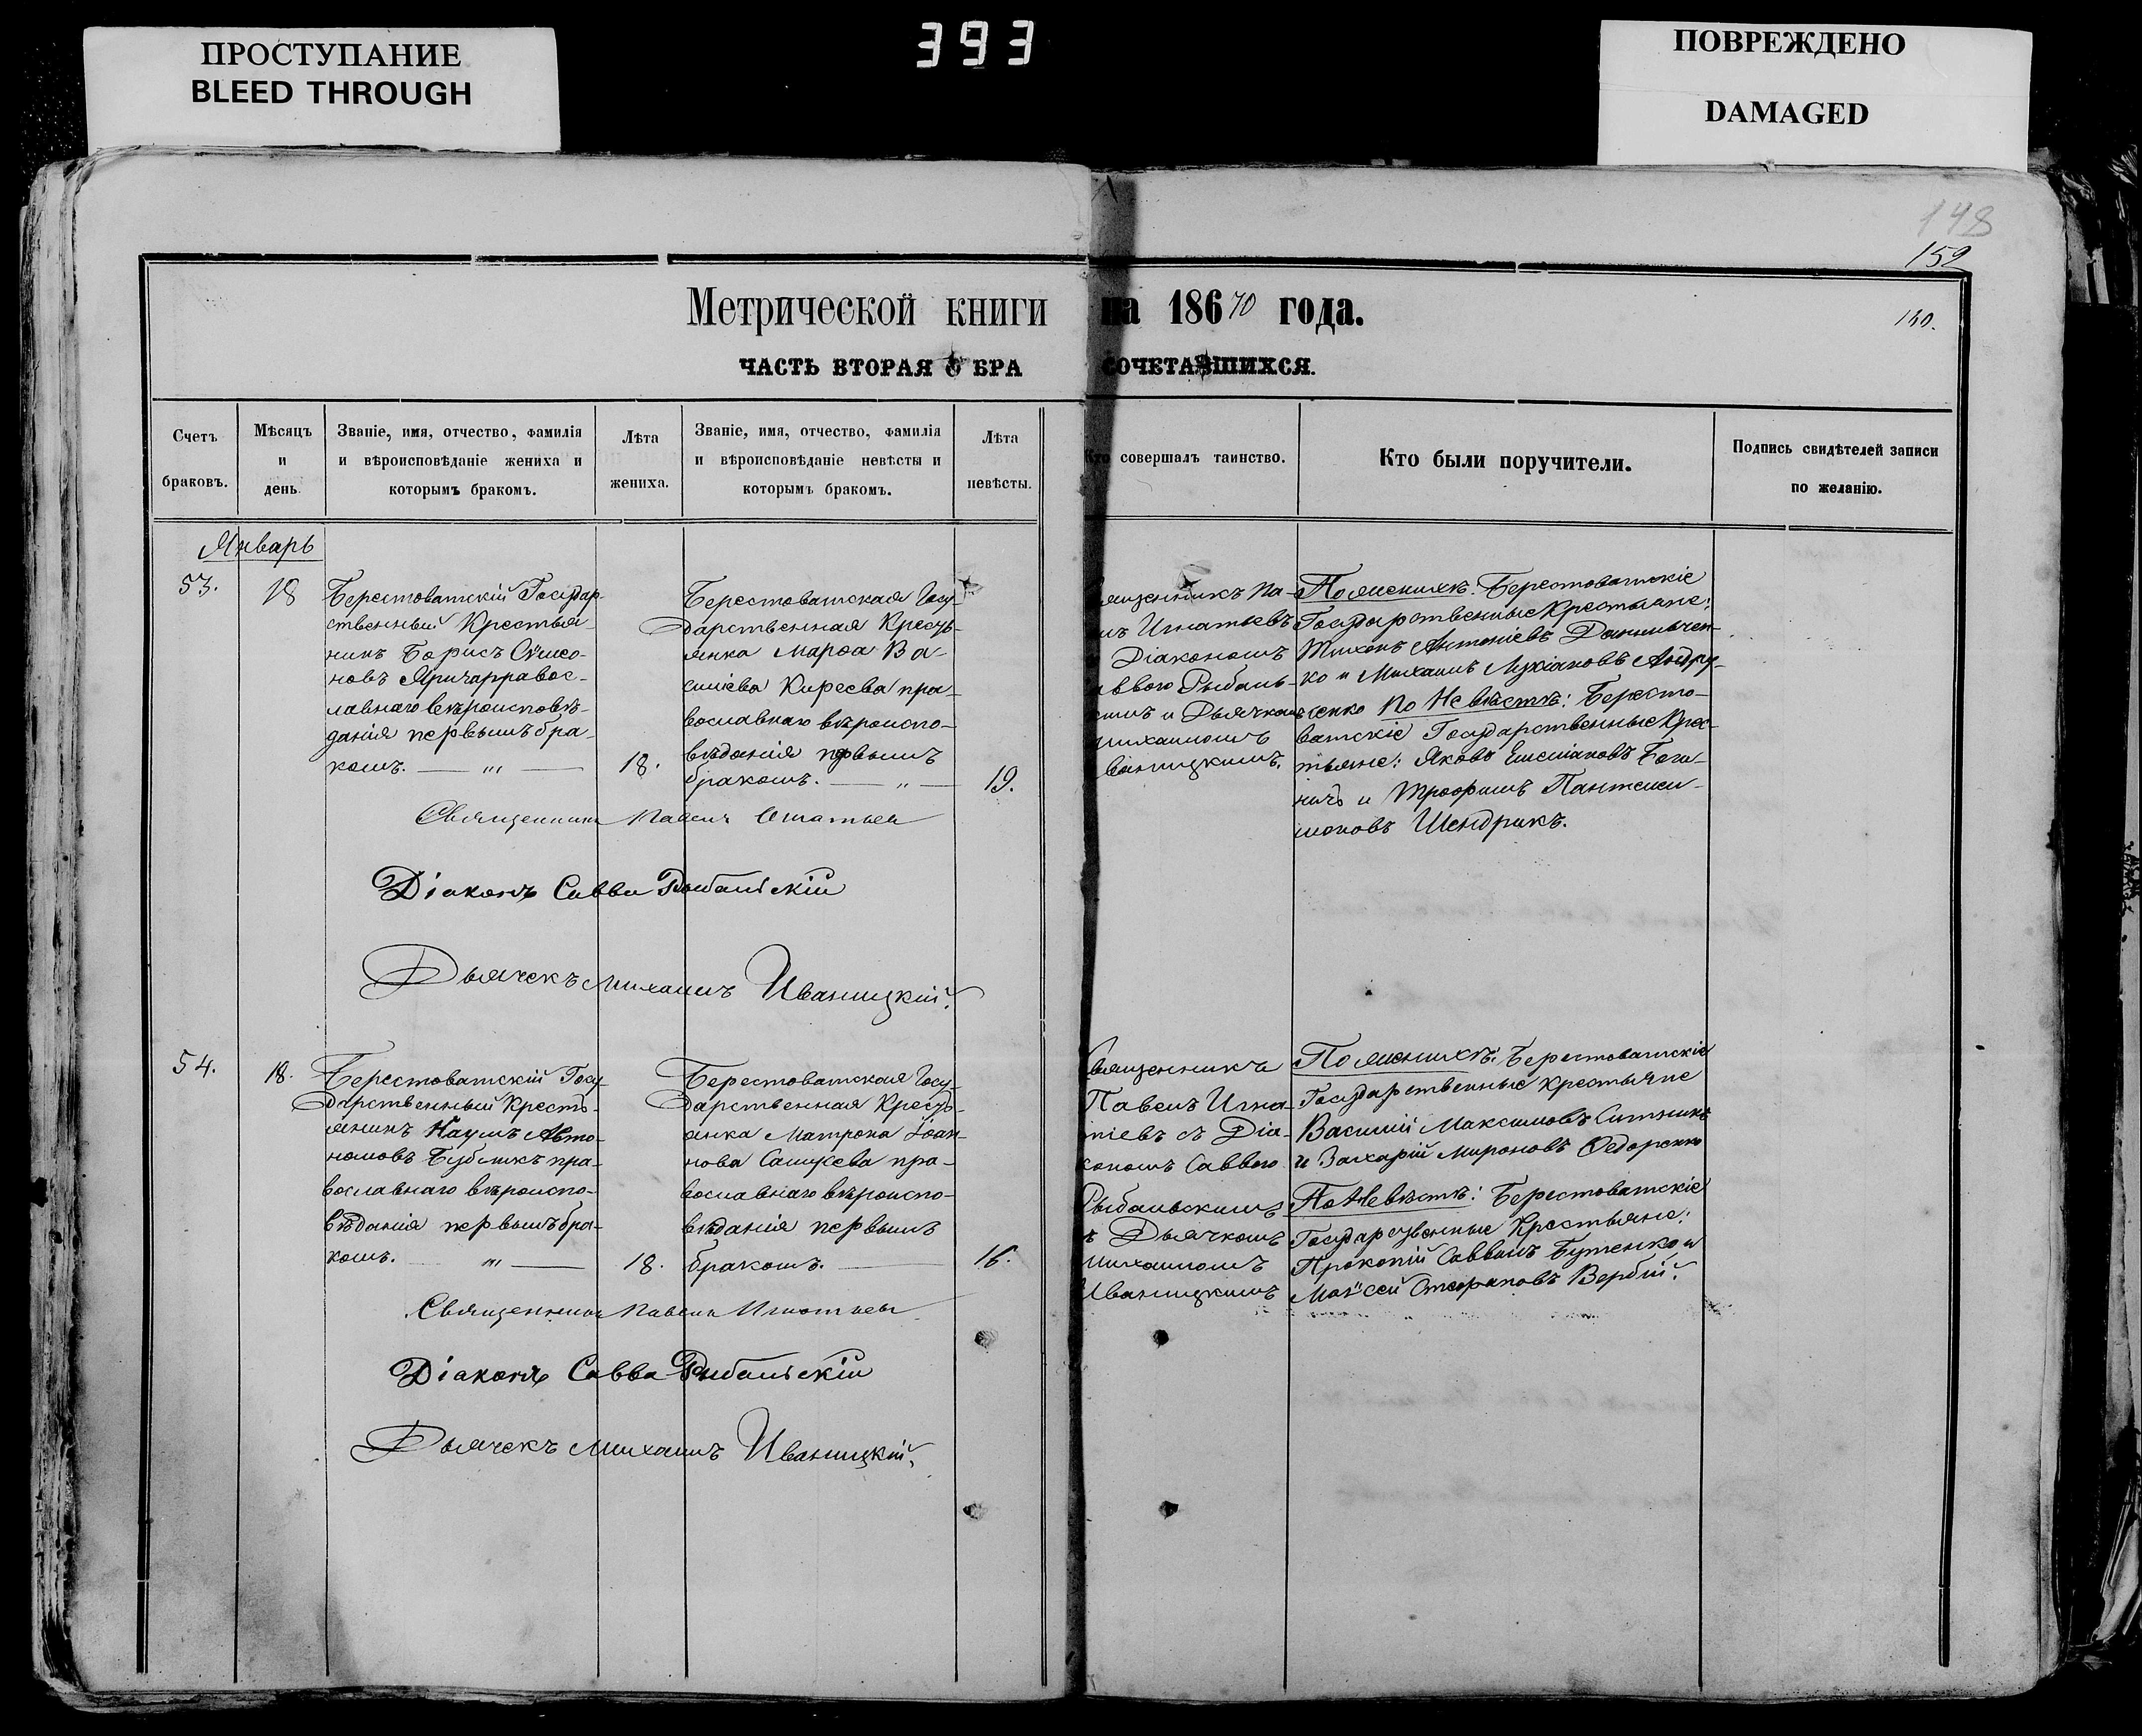 ПРОСТУПАНИЕ
BLEED THROUGH
393
ПОВРЕЖДЕНО
DAMAGED
148
152
Метрической книги на 18670 года.
140.
ЧАСТЬ ВТОРАЯ О БРА СОЧЕТАВШИХСЯ.
Счетъ
браковъ.
Мѣсяцъ
и
день.
Званіе, имя, отчество, фамилія
и вѣроисповѣданіе жениха и
которымъ бракомъ.
Лѣта
жениха.
Званіе, имя, отчество, фамилія
и вѣроисповѣданіе невѣсты и
которымъ бракомъ.
Лѣта
невѣсты.
Кто совершалъ таинство.
Кто были поручители.
Подпись свидѣтелей записи
по желанію.
Январь
53.
18
Берестоватскій Государ-
ственный Крестья-
нинъ Борисъ Сѵмео-
новъ правос-
лавнаго вѣроисповѣ-
данія первымъ бра-
комъ. — „ —
18.
Берестоватская Госу-
дарственная Кресть-
янка Марѳа Ва-
силіева Киреева пра-
вославнаго вѣроиспо-
вѣданія первымъ
бракомъ. — „ —
19.
ященникъ Па-
лъ Игнатьевъ
Діакономъ
аввою Рыбаль-
имъ и Дьячкомъ
Михаиломъ
Иваницкимъ.
По женихѣ: Берестоватскіе
Государственные Крестьяне:
Тихонъ Антоніевъ Данильчен-
ко и Михаилъ Лукіановъ Андру-
сенко По Невѣстѣ: Бересто-
ватскіе Государственные Крес-
тьяне: Яковъ Емельяновъ
и Трофимъ Пантелеи-
моновъ Шендрикъ.
Священникъ Павелъ Игнатьев
Діаконъ Савва Рыбальскій
Дьячекъ Михаилъ Иваницкій.
54.
18.
Берестоватскій Госу-
дарственный Кресть-
янинъ Наумъ Авто-
номовъ Бубликъ пра-
вославнаго вѣроиспо-
вѣданія первымъ бра-
комъ. — „ —
18.
Берестоватская Госу-
дарственная Кресть-
янка Матрона Іоан-
нова пра-
вославнаго вѣроиспо-
вѣданія первымъ
бракомъ. —
16.
Священникъ
Павелъ Игна-
тіевъ съ Діа-
кономъ Саввою
Рыбальскимъ
и Дьячкомъ
Михаиломъ
Иваницкимъ
По женихѣ: Берестоватскіе
Государственные крестьяне
Василій Максимовъ Ситникъ
и Захарій Мироновъ Ѳедоренко
По Невѣстѣ: Берестоватскіе
Государственные Крестьяне:
Прокопій Саввинъ Бутенко и
Моѵсей Стефановъ Вербій.
Священникъ Павелъ Игнатьев
Діаконъ Савва Рыбальскій
Дьячекъ Михаилъ Иваницкій.